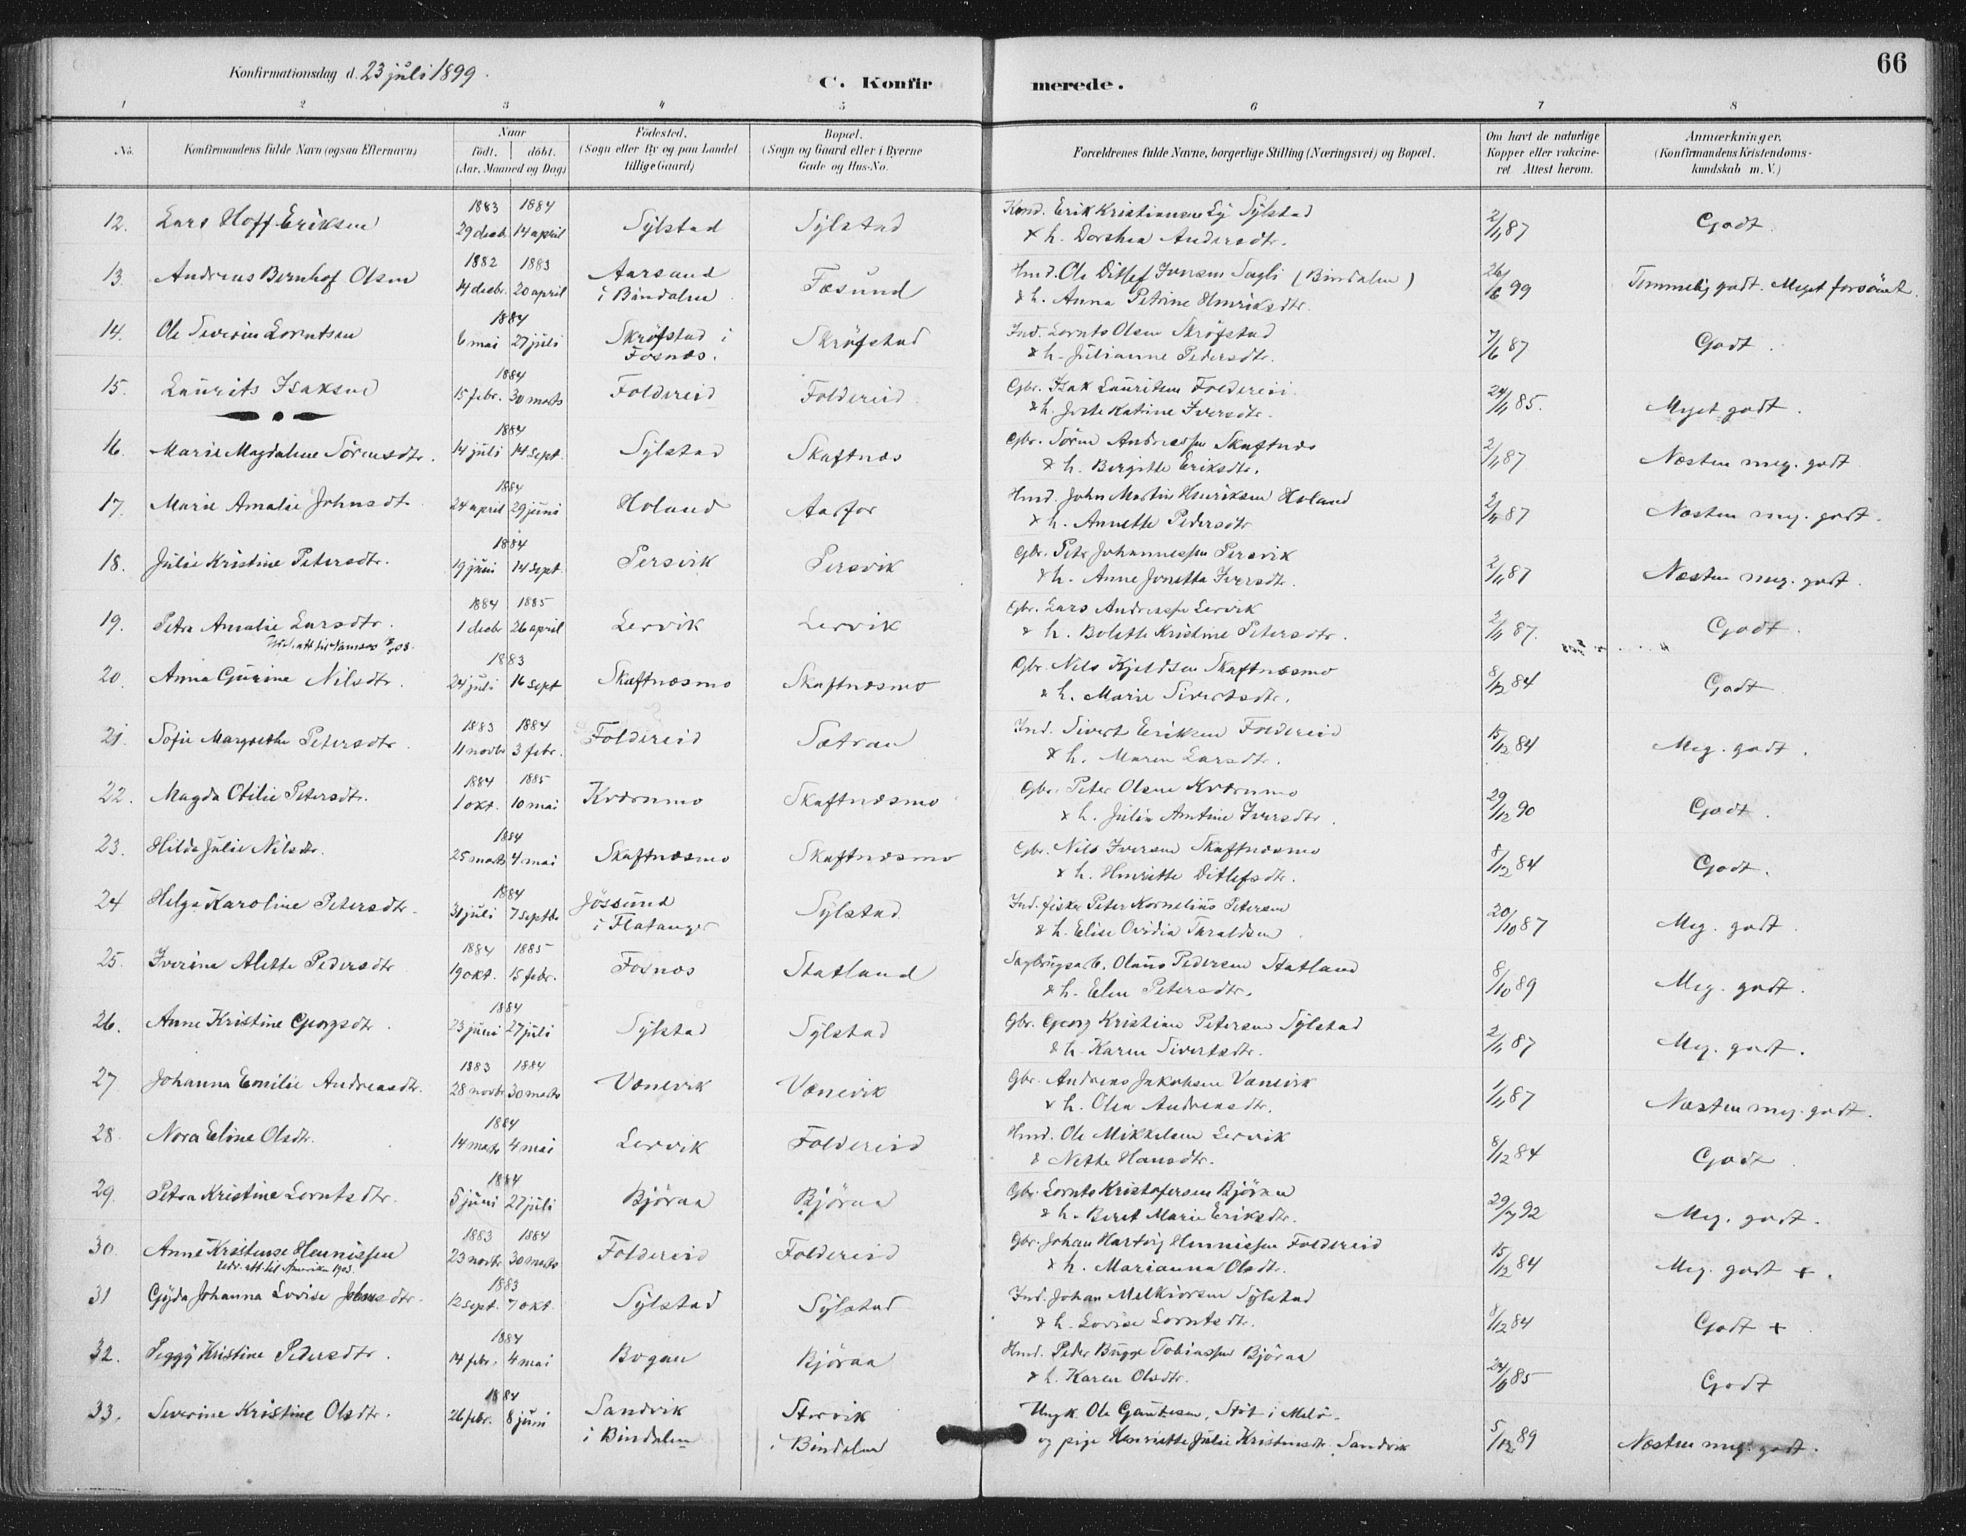 66
Konfirmationsdag d. 23 juli 1899.
C. Konfirmerede.
1 2 3 4 5 6 7 8
No. Konfirmandens fulde Navn (ogsaa Efternavn) Naar födt. döbt. (Aar, Maaned og Dag) Födested. (Sogn eller By og paa Landet tillige Gaard) Bopæl. (Sogn og Gaard eller i Byerne Gade og Hus-No. Forældrenes fulde Navne, borgerlige Stilling (Næringsvei) og Bopæl. Om havt de naturlige Kopper eller vakcineret. Attest herom. Anmærkninger. (Konfirmandens Kristendomskundskab m. V.)
12. Lars Hoff Eriksen 1883 29 decb. 1884 14 april Sylstad Sylstad Erik Kristiansen Sylstad
& h. Dorthea Andersdtr. 2/11 87 Godt.
13. Andreas Bernhof Olsen 1882 14 decbr. 1883 20 april Aarsand i Bindalen Fæsund Hmd. Ole Ditlef Iversen (Bindalen)
& h. Anna Petrine Henriksdtr. 26/6 99 Temmelig godt. Meget forsömt.
14. Ole Severin Lorntsen 1884 6 mai 27 juli Skröfstad i Fosnæs. Skröfstad Ind. Lornts Olsen Skröfstad
& h. Julianne Pedersdtr. 7/6 87 Godt.
15. Laurits Isaksen 1884 15 febr. 30 marts Foldereid Foldereid Gbr. Isak Lauritsen Foldereid
& h. Katrine Iversdtr. 24/11 85. Myet godt.
16. Marie Magdalene Sörensdtr. 1884 14 juli 14 sept. Sylstad Skaftnæs Gbr. Sören Andreassen Skaftnæs
& h. Bergitte Eriksdtr. 2/11 87 Næsten meg. godt
17. Marie Amalie Johnsdt. 1884 24 april 29 juni Holand Aarfor Hmd. John Martin Henriksen Holand
& h. Annette Pedersdtr. 2/11 87 Næsten meg. godt.
18. Julie Kristine Petersdtr. 1884 19 juni 14 sept. Persvik Persvik Gbr. Peter Johannessen Persvik
& h. Anne Jonetta Iversdtr. 2/11 87 Næsten meg. godt.
19. Petra Amalie Larsdtr. 1884 1 decbr 1885 26 april Lervik Lervik Gbr. Lars Andreassen Lervik
& h. Bolette Kristine Petersdtr. 2/11 87. Godt.
20. Anna Gurine Nilsdtr. 1883 24 juli 16 sept Skaftnæsmo Skaftnæsmo Gbr. Nils Kjeldsen Skaftnæsmo
& h. Marie Sivertsdtr. 8/12 84 Godt
21. Sofie Margrethe Petersdtr. 1883 11 novbr 1884 3 febr. Foldereid Sætran Ind. Sivert Eriksen Foldereid
& h. Maren Larsdtr. 15/12 84 Meg. godt.
22. Magda Otilie Petersdtr. 1884 1 okt. 1885 10 mai Kværnmo Skaftnæsmo Gbr. Peter Olsen Kværnmo
& h. Julia Antine Iversdtr. 29/12 90 Godt.
23. Hilda Julie Nilsdtr. 1884 25 marts 4 mai Skaftnæsmo Skaftnæsmo Gbr. Nils Iversen Skaftnæsmo
& h. Henriette Ditlefsdtr. 8/12 84 Godt.
24 Helga Karoline Petersdtr. 1884 31 juli 7 septbr Jössund i Flatanger Sylstad Ind. fisker Peter Kornelius Petersen
& h. Elise Ovidia Tharaldsen 20/10 87 Meg. godt.
25. Iverine Alette Pedersdtr 1884 19 okt. 1885 15 febr. Fosnæs Statland Sagbrugsarb. Olaus Pedersen Statland
& h. Elen Petersdtr. 8/10 89 Meg. godt.
26. Anne Kristine Georgsdtr. 1884 23 juni 27 juli Sylstad Sylstad Gbr. Georg Kristian Petersen Sylstad
& h. Karen Sivertsdtr. 2/11 87 Meg. godt.
27 Johanna Emilie Andreasdtr. 1883 28 novbr 1884 30 marts Vænevik Vænevik Gbr. Andreas Jakobsen Vænevik
& h. Olea Andreasdtr. 1/11 87 Næsten meg. godt.
28. Nora Eline Olsdtr. 1884 14 marts 4 mai Lervik Foldereid Hmd. Ole Mikkelsen Lervik
& Nette Hansdtr. 8/12 84 Godt
29. Petra Kristine Lorntsdtr. 1884 5 juni 27 juli Björaa Björaa Gbr. Lornts Kristofersen Björaa
& h. Beret Marie Eriksdtr. 29/7 92 Meg. godt.
30. Anne Kristense Hennissen 1883 23 novbr 1884 30 marts Foldereid Foldereid Gbr. Johan Hartvig Hennissen Foldereid
Udv. att til Amerika 1903. & h. Marianna Olsdtr. 15/12 84 Meg. godt +.
31 Gyda Johanna Lovise Johnsdtr. 1883 12 sept. 7 okt. Sylstad Sylstad Ind. Johan Melkiorsen Sylstad
& h. Lovise Lorntsdtr. 8/12 84 Godt +
32. Peggy Kristine Pedersdtr. 1884 14 febr. 4 mai Bogen Björaa Hmd. Peder Bugge Tobiassen Björaa
& h. Karen Olsdtr. 24/9 85 Godt
33. Severine Kristine Olsdtr. 1884 26 febr. 8 juni Sandvik i Bindalen Storvik i Bindalen Ungk. Ole Gautesen, Stöt i Melö.
og pige Henriette Julie Kristensdtr. Sandvik 5/12 89 Næsten meg. godt.